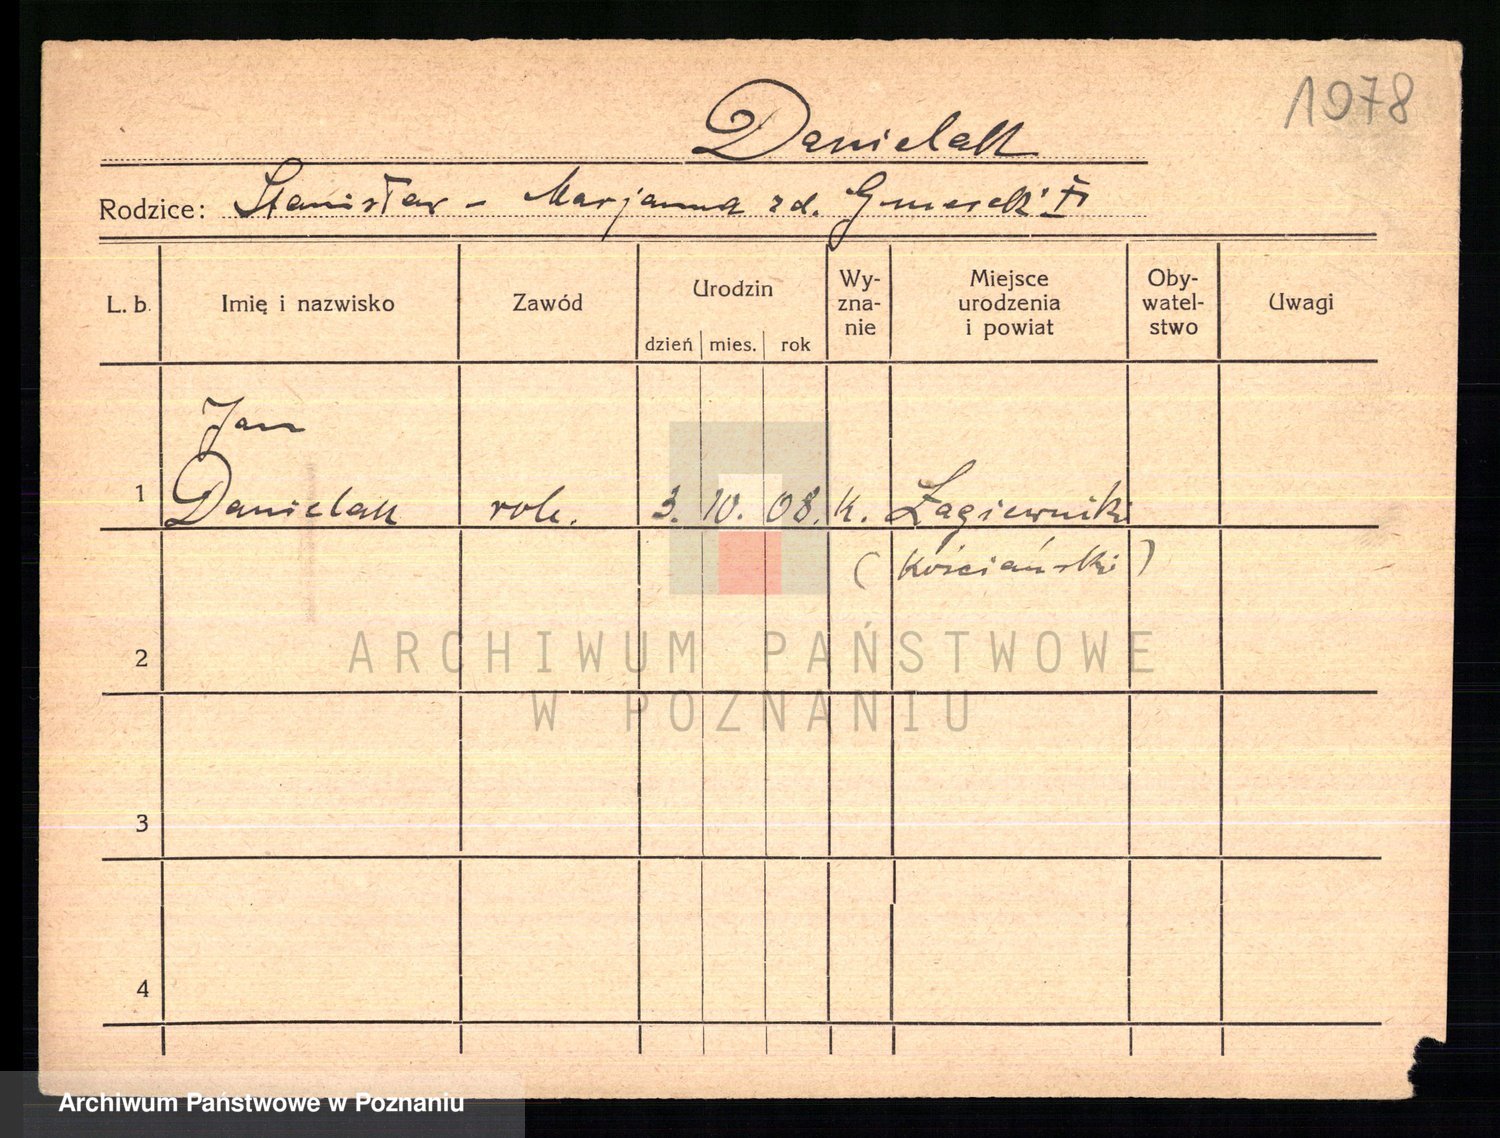 1078
Danielak
Rodzice: Stanisław - Marjanna zd.
L. b. Imię i nazwisko Zawód Urodzin Wy-zna-nie Miejsce urodzenia i powiat Oby-watel-stwo Uwagi
dzień mies. rok
Jan
1 Danielak rol. 3. 10. 08. k. Łagiewniki
(Kościański)
2
ARCHIWUM PAŃSTWOWE
W POZNANIU
3
4
Archiwum Państwowe w Poznaniu